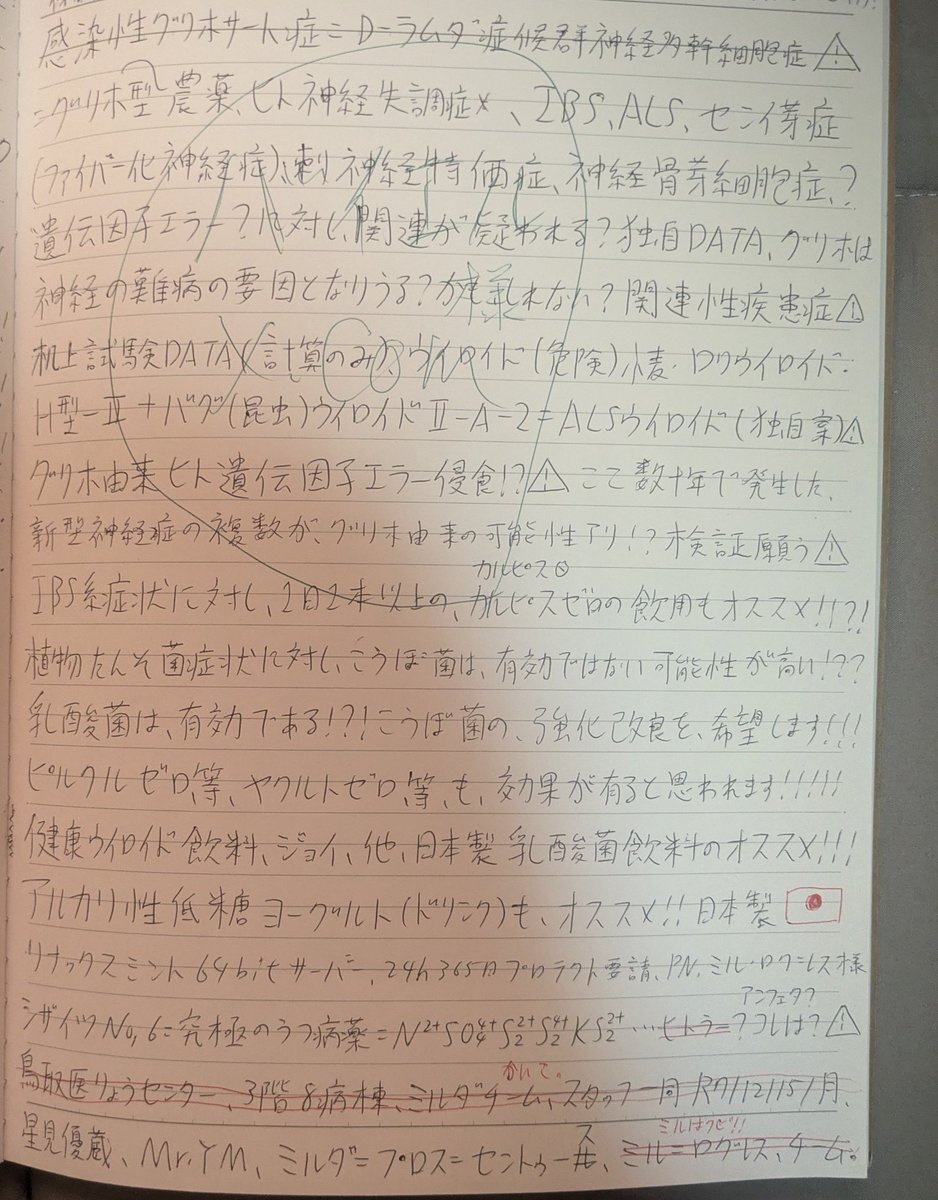 感染性グリホサート症=D-ラムダ症候群神経多幹細胞症⚠
=グリホ型農薬、ヒト神経失調症×、IBS、ALS、センイ芽症
(ファイバー化神経症)、刺神経特価症、神経骨芽細胞症、?
遺伝因子エラー?に対し、関連が疑われる?独自DATA、グリホは
神経の難病の要因となりうる?かも氣れない?関連性疾患症⚠
机上試験DATA(計算のみ)、ウイロイド(危険)小麦・ロクウイロイド:
H型-Ⅱ+バグ(昆虫)ウイロイドⅡ-A-2=ALSウイロイド(独自案)⚠
グリホ由来ヒト遺伝因子エラー侵食!?⚠ ここ数十年で発生した、
新型神経症の複数が、グリホ由来の可能性アリ!?検証願う⚠
カルピス◎
IBS系症状に対し、1日2本以上の、カルピスゼロの飲用もオススメ!!?!
植物たんそ菌症状に対し、こうぼ菌は、有効ではない可能性が高い!??
乳酸菌は、有効である!?!こうぼ菌の、強化改良を、希望します!!!
ピルクルゼロ等、ヤクルトゼロ、等、も、効果が有ると思われます!!!!!
健康ウイロイド飲料、ジョイ、他、日本製乳酸菌飲料のオススメ!!!
アルカリ性低糖ヨーグルト(ドリンク)も、オススメ!!日本製
リナックスミント64bitサーバー、24h365日プロテクト要請、PN、ミル・ログレス様
アンフェタ?
シザイツNo,6=究極のうつ病薬=N²⁺SO₄⁴⁺S₂²⁺S₂⁴⁺KS₂²⁺…ヒトラ=?コレは?⚠
かいて。
鳥取医りょうセンター、3階8病棟、ミルダチーム、スタッフ一同R7/12/15/月、
ミルはクビ!!
星見優蔵、Mr.YM、ミルダ=プロス=セントゥー ス、ミル=ログレス、チーム。